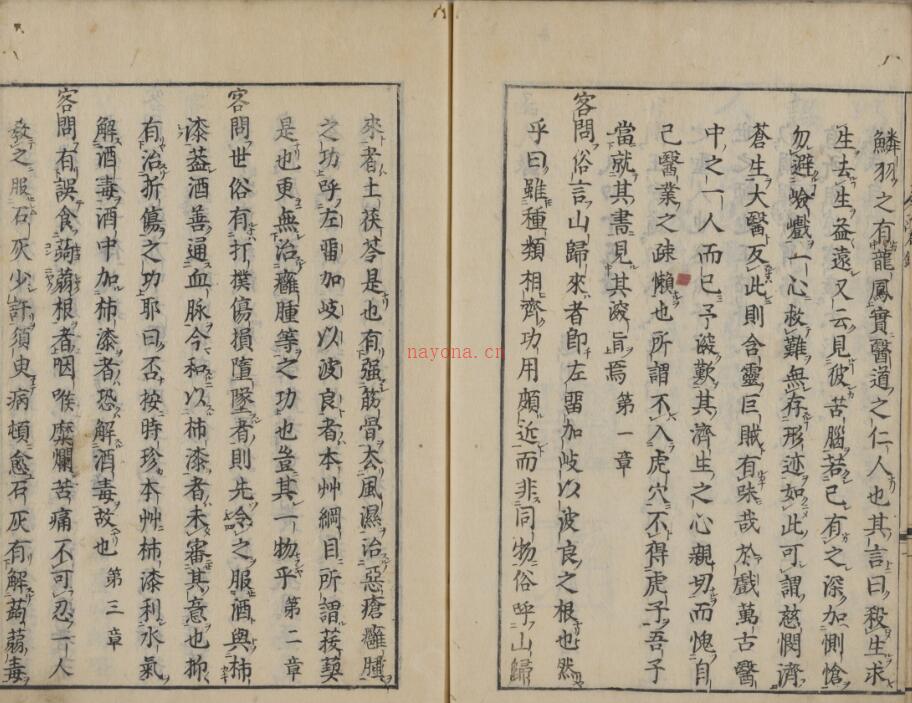 鱗羽之有龍鳳實醫道之仁人也其言曰殺生求
生去生益遠又云見彼苦腦若己有之深加惻愴
勿避嶮巇一心救難無存形迹如此可謂慈憫濟
蒼生大醫反此則含靈巨賊有味哉於戲萬古醫
中之一人而已予深歎其濟生之心親切而愧自
己醫業之疎懶也所謂不入虎穴不得虎子吾子
當就其書見其深旨焉 第一章
客問俗言山歸來者即左畱加岐以波良之根也然
乎曰雖種類相齊功用頗近而非同物俗呼山歸
來者土茯苓是也有强筋骨去風濕治惡瘡癰腫
之功呼左畱加岐以波良者本艸綱目所謂菝葜
是也更無治癰腫等之功也豈其一物乎 第二章
客問世俗有打撲傷損墮墜者則先令之服酒與柿
漆葢酒善通血脉今和以柿漆者未審其意也抑
有治折傷之功耶曰否按時珍本艸柿漆利水氣
解酒毒酒中加柿漆者恐解酒毒故也 第三章
客問有誤食蒟蒻根者咽喉糜爛苦痛不可忍一人
教之服石灰少許須臾病頓愈石灰有解蒟蒻毒
nayona.cn